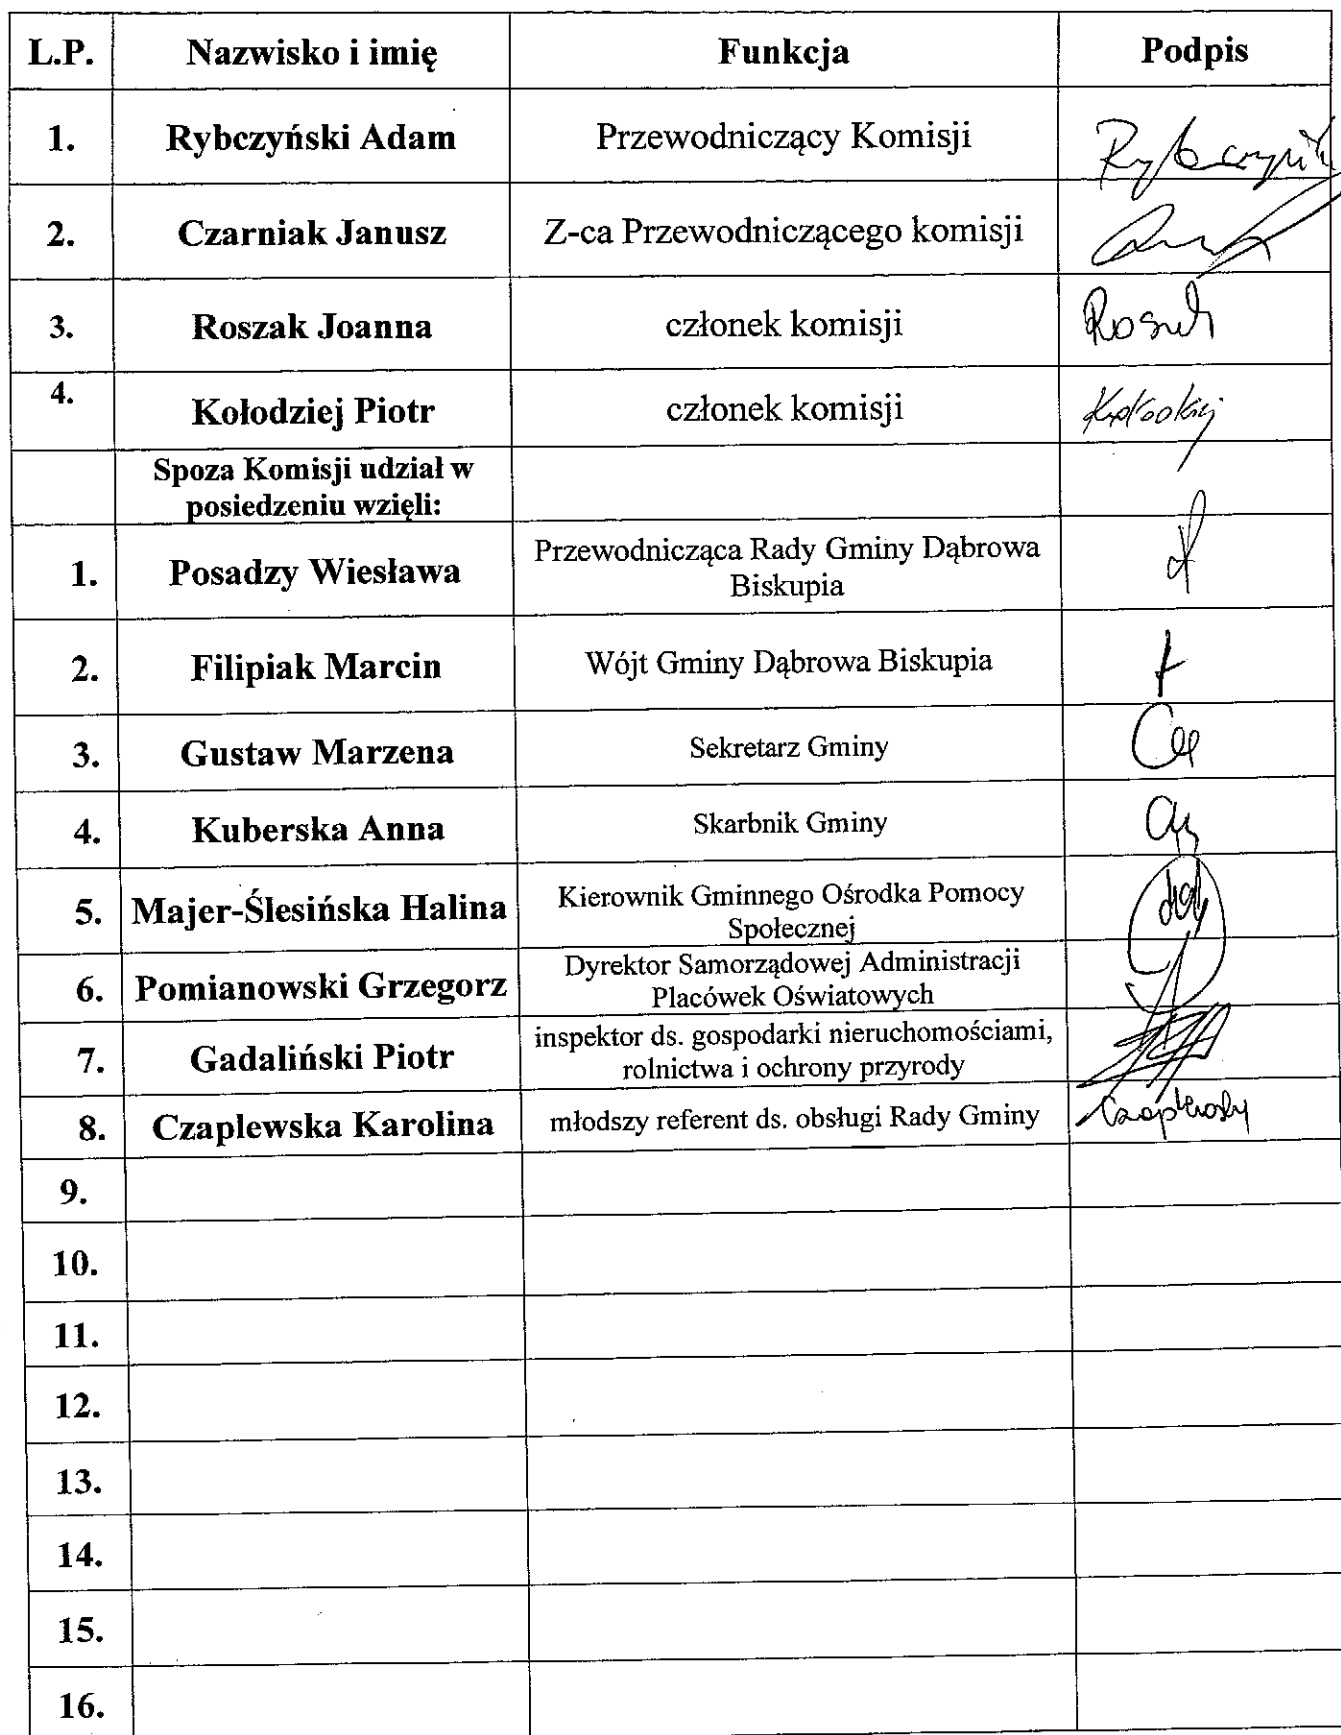 L.P. Nazwisko i imię Funkcja Podpis
1. Rybczyński Adam Przewodniczący Komisji Rybczyński
2. Czarniak Janusz Z-ca Przewodniczącego komisji
3. Roszak Joanna członek komisji
4. Kołodziej Piotr członek komisji Kołodziej
Spoza Komisji udział w
posiedzeniu wzięli:
1. Posadzy Wiesława Przewodnicząca Rady Gminy Dąbrowa
Biskupia
2. Filipiak Marcin Wójt Gminy Dąbrowa Biskupia
3. Gustaw Marzena Sekretarz Gminy
4. Kuberska Anna Skarbnik Gminy
5. Majer-Ślesińska Halina Kierownik Gminnego Ośrodka Pomocy
Społecznej
6. Pomianowski Grzegorz Dyrektor Samorządowej Administracji
Placówek Oświatowych
7. Gadaliński Piotr inspektor ds. gospodarki nieruchomościami,
rolnictwa i ochrony przyrody
8. Czaplewska Karolina młodszy referent ds. obsługi Rady Gminy
9.
10.
11.
12.
13.
14.
15.
16.